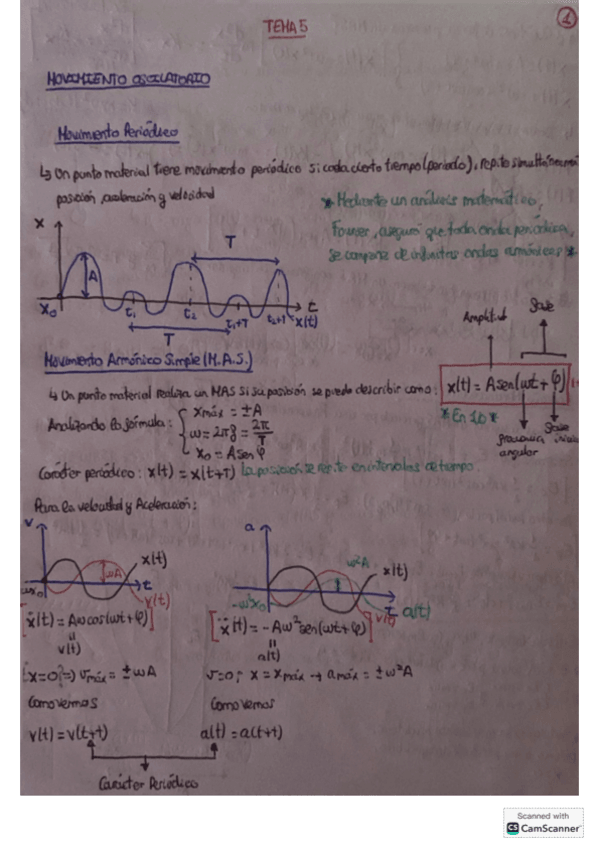 TEMA 5
1
MOVIMIENTO OSCILATORIO
Movimiento Periódico
↳ Un punto material tiene movimiento periódico si cada cierto tiempo (periodo), repite
posición, aceleración y velocidad
* Mediante un análisis matemático,
Fourier, aseguró que toda onda periódica,
se compone de infinitas ondas armónicas *
X
T
A
X₀
t₁
t₂
t₁+T
t₂+T
t
x(t)
T
Movimiento Armónico Simple (M.A.S.)
Amplitud
fase
↳ Un punto material realiza un MAS si su posición se puede describir como:
x(t) = A sen(ωt + φ)
* En 1D *
frecuencia
angular
fase
Analizando la fórmula:
xmáx = ±A
ω = 2πf = 2π/T
x₀ = A sen φ
Carácter periódico: x(t) = x(t+T) la posición se repite en intervalos de tiempo.
Para la velocidad y Aceleración:
v
ωA
x(t)
t
v(t)
a
ω²A
x(t)
t
a(t)
v(t)
-ω²x₀
[ẋ(t) = Aω cos(ωt + φ)]
=
v(t)
[ẍ(t) = -Aω² sen(ωt + φ)]
=
a(t)
x=0 ⇒ vmáx = ±ωA
v=0; x = xmáx → amáx = ±ω²A
Como vemos
Como vemos
v(t) = v(t+t)
a(t) = a(t+t)
Carácter Periódico
Scanned with
CS CamScanner